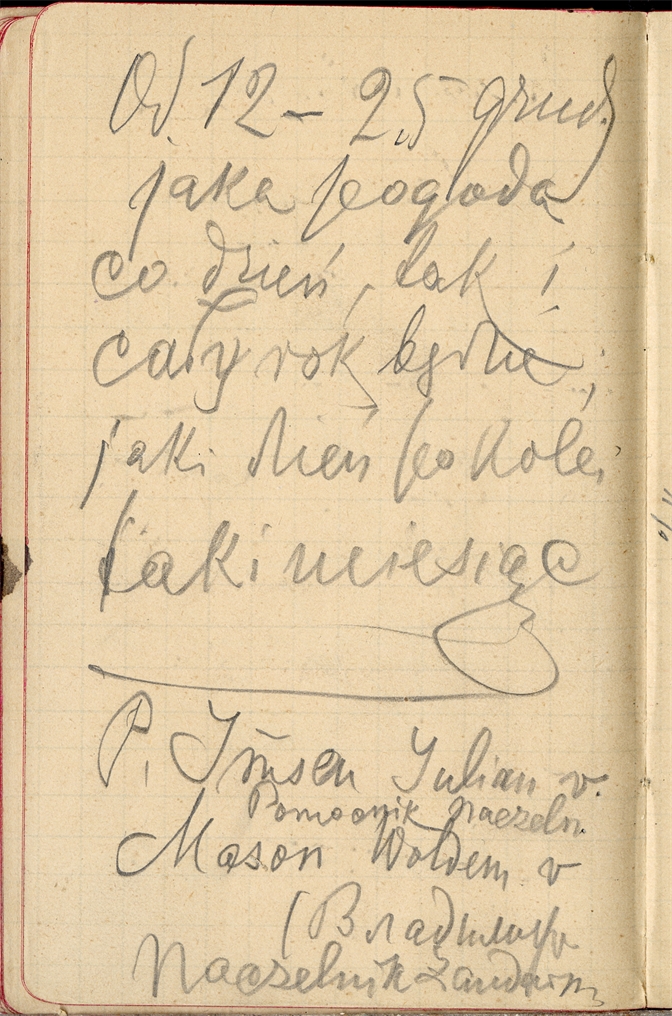 Od 12 – 25 grud.
jaka pogoda
co dzień, tak i
cały rok będzie;
jaki dzień po kolei
taki miesiąc
P. Julian v.
Pomocnik Naczeln.
Mason Woldem v
(Владимир
Naczelnik Żandarm